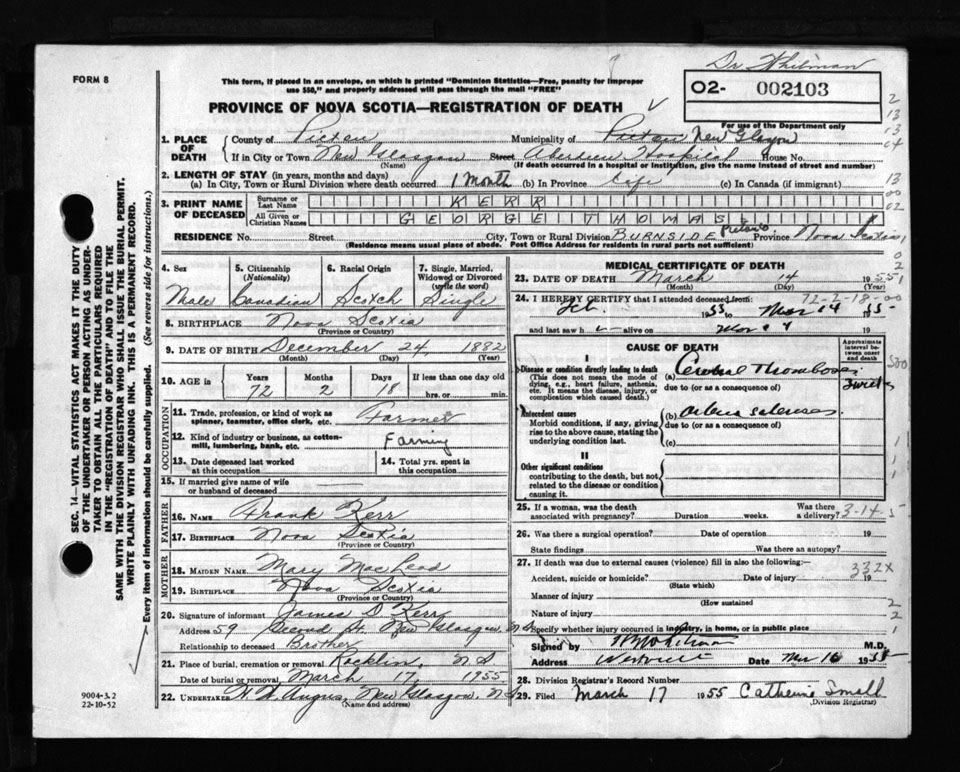 FORM 8
Dr Whitman
This form, if placed in an envelope, on which is printed "Dominion Statistics—Free, penalty for improper
use $50," and properly addressed will pass through the mail "FREE"
PROVINCE OF NOVA SCOTIA—REGISTRATION OF DEATH
02- 002103
For use of the Department only
1. PLACE OF DEATH
County of Pictou Municipality of Pictou New Glasgow
If in City or Town New Glasgow Street Aberdeen Hospital House No.
(Name) (If death occurred in a hospital or institution, give the name instead of street and number)
2. LENGTH OF STAY (in years, months and days)
(a) In City, Town or Rural Division where death occurred 1 Month (b) In Province Life (c) In Canada (if immigrant)
3. PRINT NAME OF DECEASED
Surname or Last Name KERR
All Given or Christian Names GEORGE THOMAS
RESIDENCE No. Street City, Town or Rural Division BURNSIDE Pictou Province Nova Scotia
(Residence means usual place of abode. Post Office Address for residents in rural parts not sufficient)
4. Sex Male
5. Citizenship (Nationality) Canadian
6. Racial Origin Scotch
7. Single, Married, Widowed or Divorced (write the word) Single
8. BIRTHPLACE Nova Scotia
(Province or Country)
9. DATE OF BIRTH December 24, 1882
(Month) (Day) (Year)
10. AGE in Years 72 Months 2 Days 18 If less than one day old hrs. or min.
OCCUPATION
11. Trade, profession, or kind of work as spinner, teamster, office clerk, etc. Farmer
12. Kind of industry or business, as cotton-mill, lumbering, bank, etc. Farming
13. Date deceased last worked at this occupation
14. Total yrs. spent in this occupation
15. If married give name of wife or husband of deceased
FATHER
16. NAME Frank Kerr
17. BIRTHPLACE Nova Scotia
(Province or Country)
MOTHER
18. MAIDEN NAME Mary MacLeod
19. BIRTHPLACE Nova Scotia
(Province or Country)
20. Signature of informant James D Kerr
Address 59 Second St. New Glasgow, N.S.
Relationship to deceased Brother
21. Place of burial, cremation or removal Rocklin, N S
Date of burial or removal March 17 1955
22. UNDERTAKER H. W. Angus, New Glasgow, N.S.
(Name and address)
MEDICAL CERTIFICATE OF DEATH
23. DATE OF DEATH March 14 1955
(Month) (Day)
24. I HEREBY CERTIFY that I attended deceased from: 72-2-18-00
Feb. 1955 to Mar 14 1955
and last saw h alive on Mar 19
CAUSE OF DEATH
Approximate interval between onset and death
I
Disease or condition directly leading to death
(This does not mean the mode of dying, e.g., heart failure, asthenia, etc. It means the disease, injury, or complication which caused death.)
(a) Cerebral Thrombosis
due to (or as a consequence of)
Antecedent causes
Morbid conditions, if any, giving rise to the above cause, stating the underlying condition last.
(b)
due to (or as a consequence of)
(c)
II
Other significant conditions
contributing to the death, but not related to the disease or condition causing it.
25. If a woman, was the death associated with pregnancy? Duration weeks. Was there a delivery? 3-14-5
26. Was there a surgical operation? Date of operation 19
State findings Was there an autopsy?
27. If death was due to external causes (violence) fill in also the following:—
332X
Accident, suicide or homicide? Date of injury 19
(State which)
Manner of injury
(How sustained
Nature of injury
Specify whether injury occurred in industry, in home, or in public place
Signed by M.D.
Address Westville Date Mar 16 1955
28. Division Registrar's Record Number
29. Filed March 17 1955 Catherine Small
(Division Registrar)
SEC. 14—VITAL STATISTICS ACT MAKES IT THE DUTY
OF THE UNDERTAKER OR PERSON ACTING AS UNDER-
TAKER TO OBTAIN ALL THE PARTICULARS REQUIRED
IN THE "REGISTRATION OF DEATH" AND TO FILE THE
SAME WITH THE DIVISION REGISTRAR WHO SHALL ISSUE THE BURIAL PERMIT.
WRITE PLAINLY WITH UNFADING INK. THIS IS A PERMANENT RECORD.
Every item of Information should be carefully supplied. (See reverse side for instructions.)
9004-3.2
22-10-52